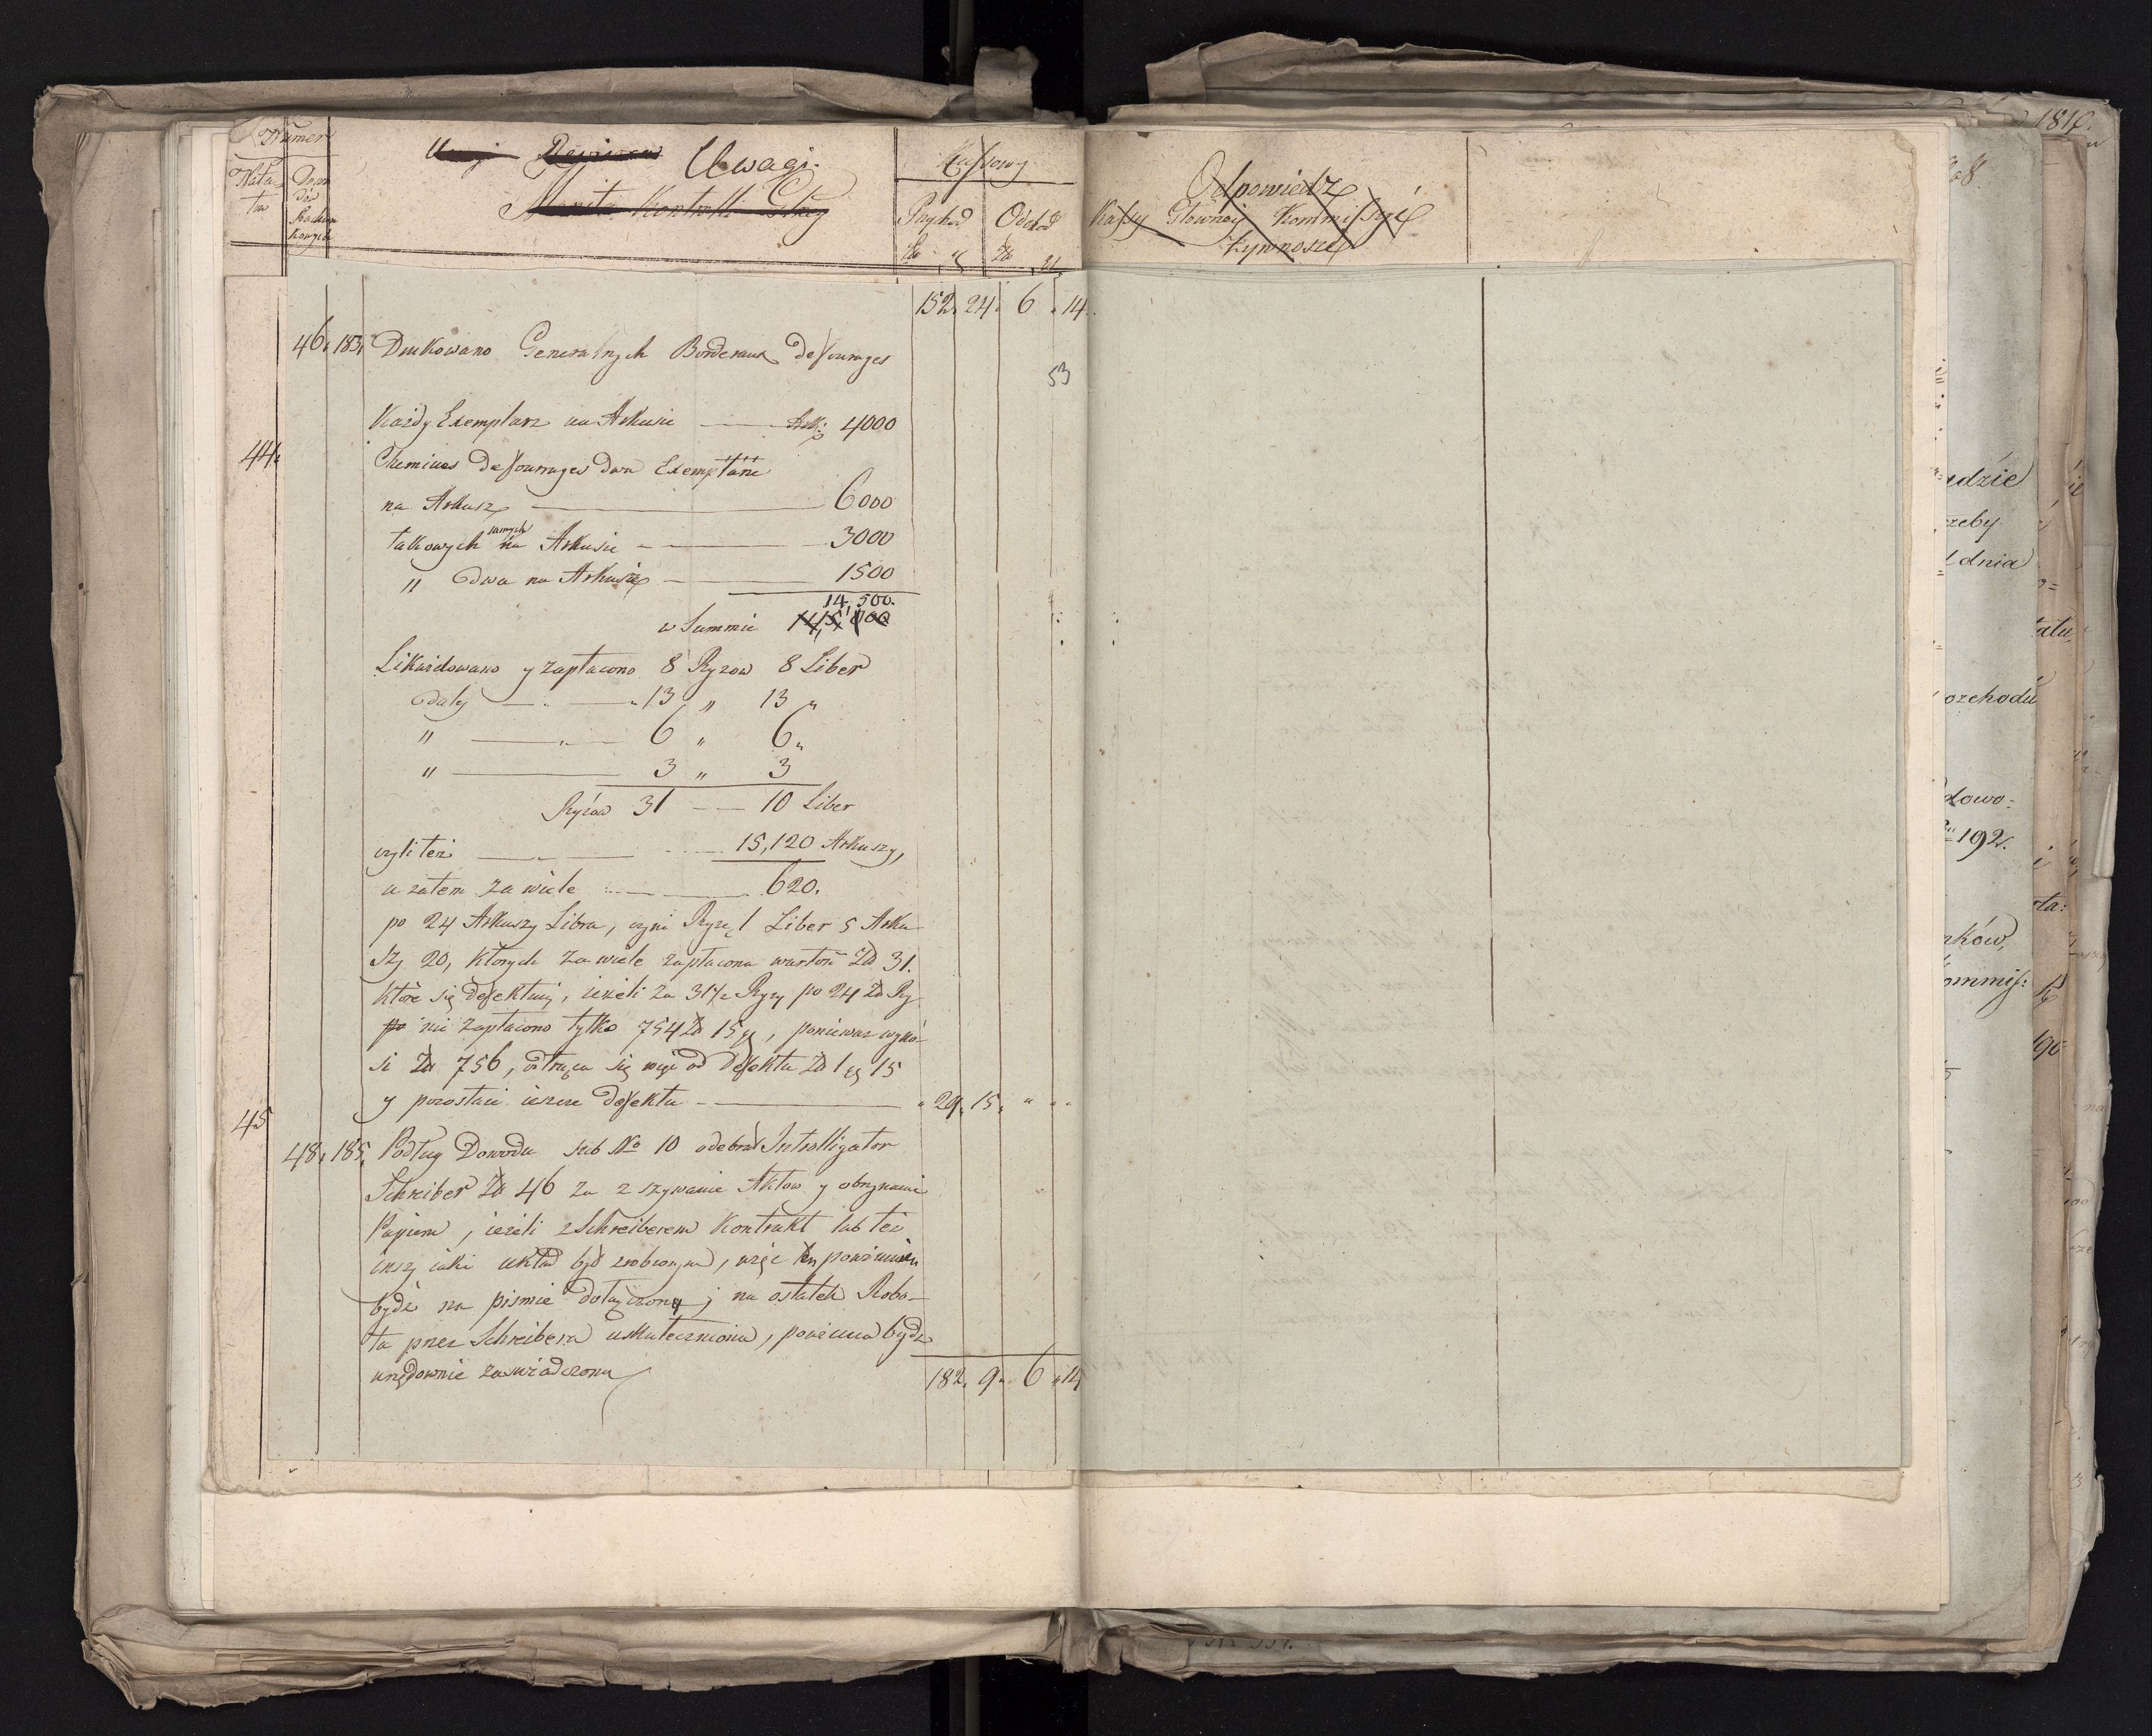 Numer
Nata
tow
Dowo
dów
Rachun
kowych
Uwagi Rewizora Uwagi.
Monita Kontrolli Głney
Kassowy
Przychod Odchod
Zło gr Zło gr
152. 24. 6 . 14.
46. 183. Drukowano Generalnych Bordereaux de fourages
53
Każdy Exemplarz na Arkusie — Ark: 4000
44. Chemices de fourrages dwa Exemplarze
na Arkusz — 6000
takowych samych na Arkusie — 3000
" dwa na Arkuszu — 1500
14,500.
w Summie
Likwidowano y zapłacono 8 Ryzow 8 Liber
daley — 13 " 13 "
" — 6 " 6 "
" — 3 " 3
Ryzow 31 — 10 Liber
czyli też — 15,120 Arkuszy,
a zatem za wiele — 620.
po 24 Arkuszy Libra, czyni Ryzę 1 Liber 5 Arku-
szy 20, ktorych za wiele zapłacona wartość Zł 31.
które się defektuią, ieżeli za 31½ Ryzy po 24 Zł Ry
po nie zapłacono tylko 754 Zł 15 gr, ponieważ wyno-
si Zł 756, otrąca się więc od defektu Zł 1 gr 15
y pozostaie ieszcze defektu — " 29. 15. " "
45
48. 185. Podług Dowodu sub No 10 odebrał Introlligator
Schreiber Zł 46 za zszywanie Aktow y obrzynanie
Papieru, ieżeli z Schreiberem Kontrakt lub też
inszy iaki układ był zrobionym, więc ten powinien
bydź na pismie dołączony; na ostatek Robo-
ta przez Schreibera uskuteczniona, powinna bydz
urzędownie zaswiadczona
182. 9. 6 . 14
Odpowiedz
Kassy Głowney Kommissyi
Żywnosci
1810.
udzie
rzeby
dnia
ozchodu
dowo=
192.
nków,
ommis: